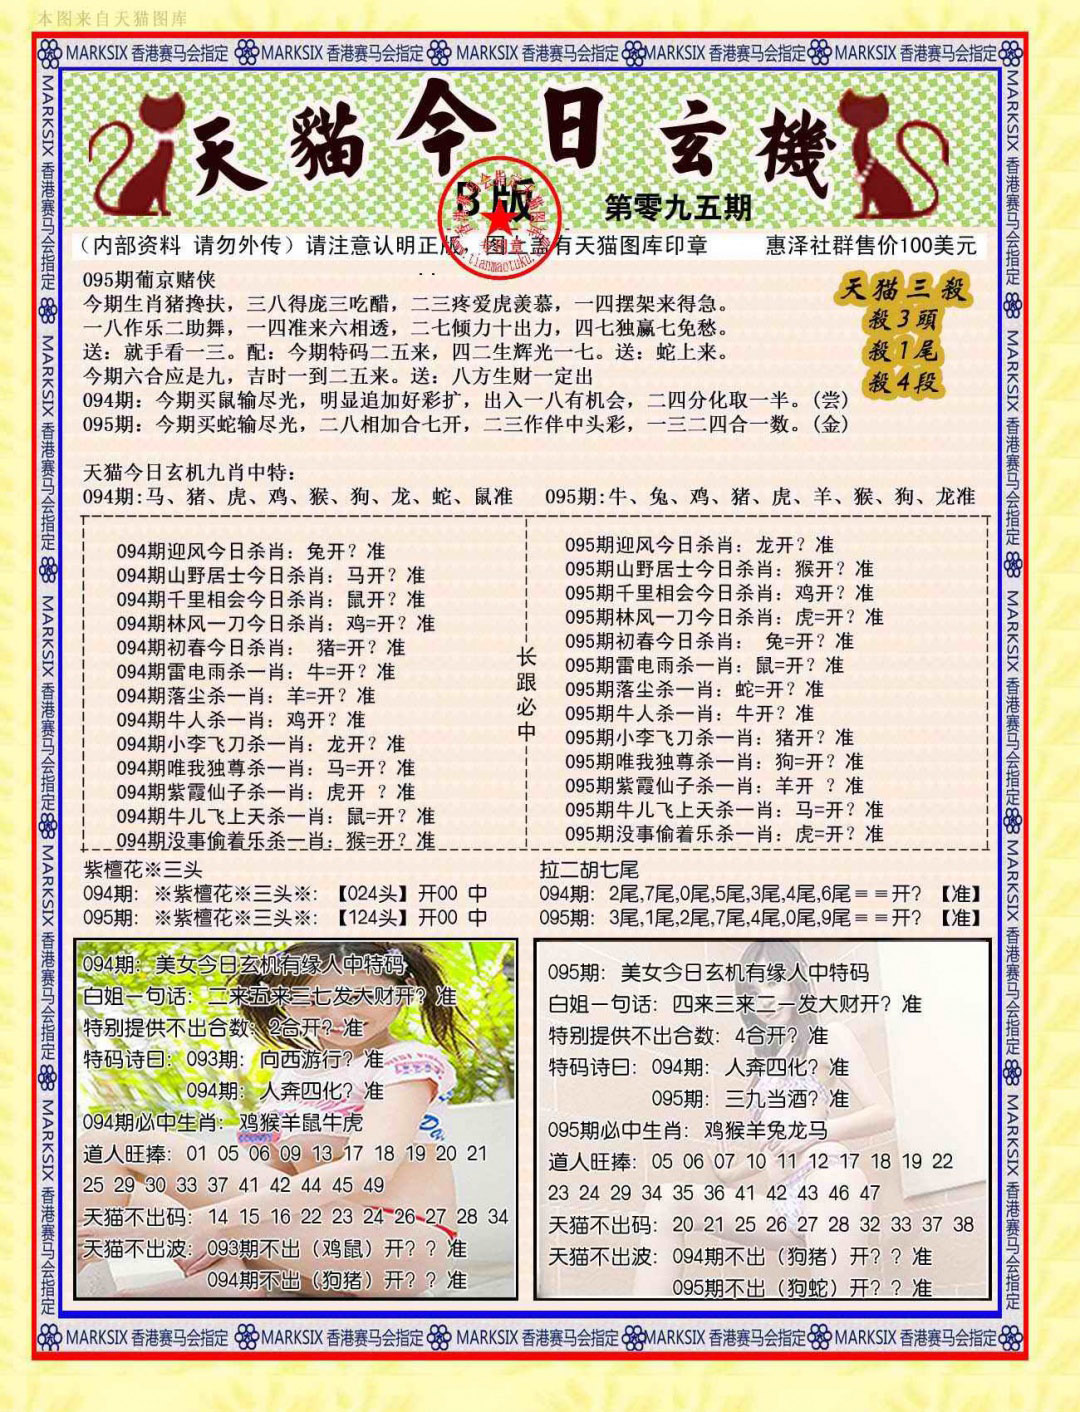 本图来自天猫图库
MARKSIX 香港赛马会指定 MARKSIX 香港赛马会指定 MARKSIX 香港赛马会指定 MARKSIX 香港赛马会指定 MARKSIX 香港赛马会指定
天貓今日玄機
B版
第零九五期
(内部资料 请勿外传)请注意认明正版，图上盖有天猫图库印章 惠泽社群售价100美元
专用章
www.tianmaotuku.com
095期葡京赌侠
今期生肖猪搀扶，三八得庞三吃醋，二三疼爱虎羡慕，一四摆架来得急。
一八作乐二助舞，一四准来六相透，二七倾力十出力，四七独赢七免愁。
送：就手看一三。配：今期特码二五来，四二生辉光一七。送：蛇上来。
今期六合应是九，吉时一到二五来。送：八方生财一定出
094期：今期买鼠输尽光，明显追加好彩扩，出入一八有机会，二四分化取一半。(尝)
095期：今期买蛇输尽光，二八相加合七开，二三作伴中头彩，一三二四合一数。(金)
天猫三殺
殺3頭
殺1尾
殺4段
天猫今日玄机九肖中特：
094期:马、猪、虎、鸡、猴、狗、龙、蛇、鼠准 095期:牛、兔、鸡、猪、虎、羊、猴、狗、龙准
094期迎风今日杀肖：兔开？准
094期山野居士今日杀肖：马开？准
094期千里相会今日杀肖：鼠开？准
094期林风一刀今日杀肖：鸡=开？准
094期初春今日杀肖： 猪=开？准
094期雷电雨杀一肖：牛=开？准
094期落尘杀一肖：羊=开？准
094期牛人杀一肖：鸡开？准
094期小李飞刀杀一肖：龙开？准
094期唯我独尊杀一肖：马=开？准
094期紫霞仙子杀一肖：虎开 ？准
094期牛儿飞上天杀一肖：鼠=开？准
094期没事偷着乐杀一肖：猴=开？准
长跟必中
095期迎风今日杀肖：龙开？准
095期山野居士今日杀肖：猴开？准
095期千里相会今日杀肖：鸡开？准
095期林风一刀今日杀肖：虎=开？准
095期初春今日杀肖： 兔=开？准
095期雷电雨杀一肖：鼠=开？准
095期落尘杀一肖：蛇=开？准
095期牛人杀一肖：牛开？准
095期小李飞刀杀一肖：猪开？准
095期唯我独尊杀一肖：狗=开？准
095期紫霞仙子杀一肖：羊开 ？准
095期牛儿飞上天杀一肖：马=开？准
095期没事偷着乐杀一肖：虎=开？准
紫檀花※三头
094期：※紫檀花※三头※：【024头】开00 中
095期：※紫檀花※三头※：【124头】开00 中
拉二胡七尾
094期：2尾,7尾,0尾,5尾,3尾,4尾,6尾＝＝开？【准】
095期：3尾,1尾,2尾,7尾,4尾,0尾,9尾＝＝开？【准】
094期：美女今日玄机有缘人中特码
白姐一句话：二来五来三七发大财开？准
特别提供不出合数：2合开？准
特码诗曰：093期：向西游行？准
094期：人奔四化？准
094期必中生肖：鸡猴羊鼠牛虎
道人旺捧：01 05 06 09 13 17 18 19 20 21
25 29 30 33 37 41 42 44 45 49
天猫不出码：14 15 16 22 23 24 26 27 28 34
天猫不出波：093期不出（鸡鼠）开？？准
094期不出（狗猪）开？？准
095期：美女今日玄机有缘人中特码
白姐一句话：四来三来二一发大财开？准
特别提供不出合数：4合开？准
特码诗曰：094期：人奔四化？准
095期：三九当酒？准
095期必中生肖：鸡猴羊兔龙马
道人旺捧：05 06 07 10 11 12 17 18 19 22
23 24 29 34 35 36 41 42 43 46 47
天猫不出码：20 21 25 26 27 28 32 33 37 38
天猫不出波：094期不出（狗猪）开？？准
095期不出（狗蛇）开？？准
MARKSIX 香港赛马会指定 MARKSIX 香港赛马会指定 MARKSIX 香港赛马会指定 MARKSIX 香港赛马会指定 MARKSIX 香港赛马会指定
MARKSIX 香港赛马会指定 MARKSIX 香港赛马会指定 MARKSIX 香港赛马会指定 MARKSIX 香港赛马会指定 MARKSIX 香港赛马会指定
MARKSIX 香港赛马会指定 MARKSIX 香港赛马会指定 MARKSIX 香港赛马会指定 MARKSIX 香港赛马会指定 MARKSIX 香港赛马会指定